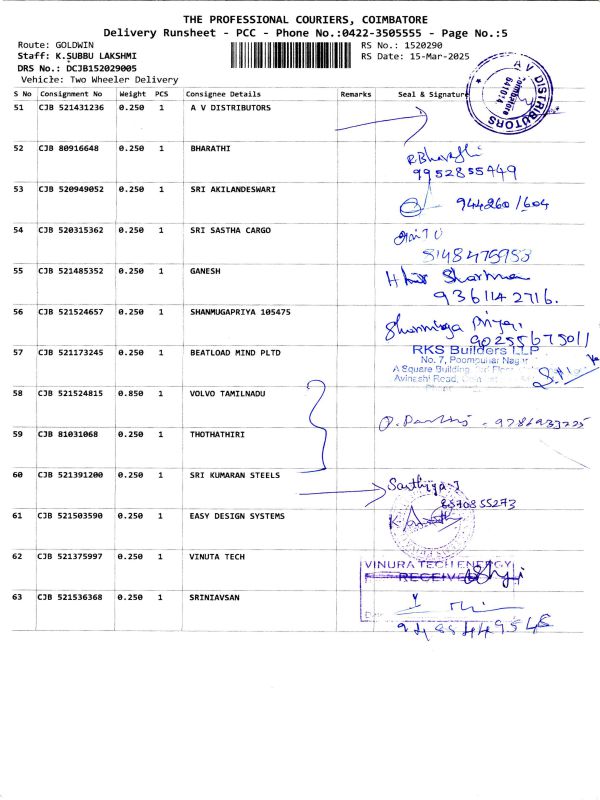 THE PROFESSIONAL COURIERS, COIMBATORE
Delivery Runsheet - PCC - Phone No.:0422-3505555 - Page No.:5
Route: GOLDWIN RS No.: 1520290
Staff: K.SUBBU LAKSHMI RS Date: 15-Mar-2025
DRS No.: DCJB152029005
Vehicle: Two Wheeler Delivery
S No Consignment No Weight PCS Consignee Details Remarks Seal & Signature
A V DISTRIBUTORS
Coimbatore
641014
51 CJB 521431236 0.250 1 A V DISTRIBUTORS
52 CJB 80916648 0.250 1 BHARATHI
R Bharathi
9952855449
53 CJB 520949052 0.250 1 SRI AKILANDESWARI
944260/604
54 CJB 520315362 0.250 1 SRI SASTHA CARGO
8148475953
55 CJB 521485352 0.250 1 GANESH
9361142716.
56 CJB 521524657 0.250 1 SHANMUGAPRIYA 105475
Shanmuga Priya
9025567501
57 CJB 521173245 0.250 1 BEATLOAD MIND PLTD
RKS Builders LLP
No. 7, Poompuhar Nagar
A Square Building,
Avinashi Road,
58 CJB 521524815 0.850 1 VOLVO TAMILNADU
59 CJB 81031068 0.250 1 THOTHATHIRI
60 CJB 521391200 0.250 1 SRI KUMARAN STEELS
Sasthiya
8870855273
61 CJB 521503590 0.250 1 EASY DESIGN SYSTEMS
62 CJB 521375997 0.250 1 VINUTA TECH
VINURA TECH ENERGY
RECEIVED
63 CJB 521536368 0.250 1 SRINIAVSAN